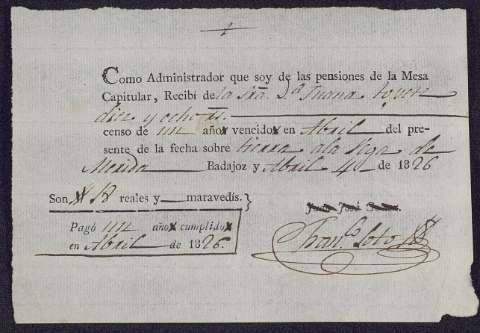 Como Administrador que soy de las pensiones de la Mesa
Capitular, Recibí de la Sra. Da. Juana
diez y ocho rs.
censo de un año vencido en Abril del pre-
sente de la fecha sobre tierra a la Sga de
Merida Badajoz y Abril 4 de 1826
Son 18 reales y maravedís.
Pagó un año cumplido
en Abril de 1826.
Franco. Soto